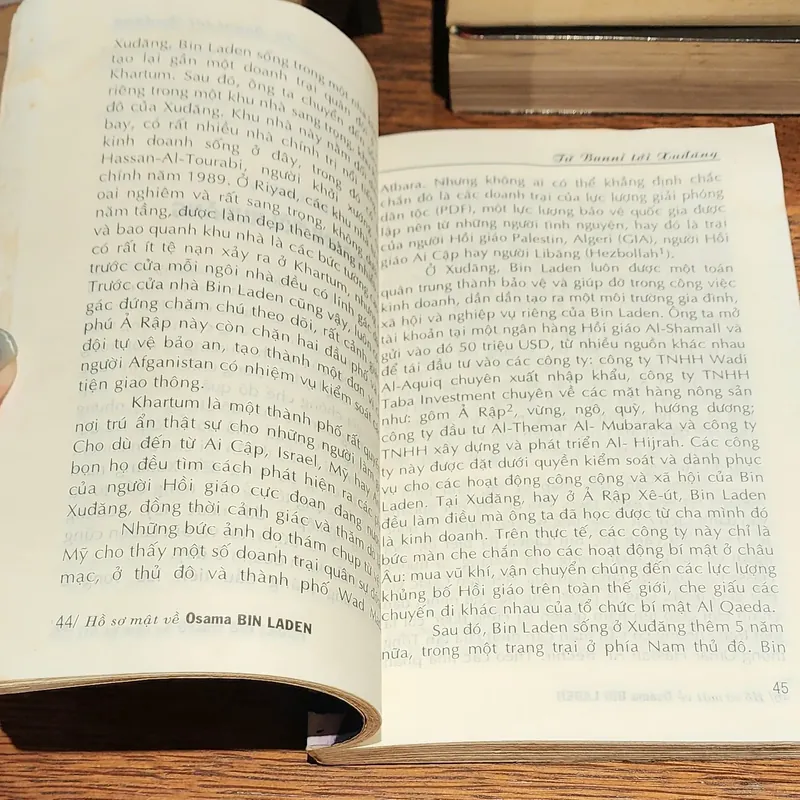 Xuđăng, Bin Laden sống trong một
tạo lại gần một doanh trại quân đội
Khartum. Sau đó, ông ta chuyển đến
riêng trong một khu nhà sang trọng,
đô của Xuđăng. Khu nhà này nằm
bay, có rất nhiều nhà chính trị nổi
kinh doanh sống ở đây, trong đó có
Hassan-Al-Tourabi, người khởi
chính năm 1989. Ở Riyad, các khu nhà
oai nghiêm và rất sang trọng, không
năm tầng, được làm đẹp thêm bằng
và bao quanh khu nhà là các bức tường
có rất ít tệ nạn xảy ra ở Khartum, nhưng
trước cửa mỗi ngôi nhà đều có lính gác.
Trước cửa nhà Bin Laden cũng vậy, luôn
gác đứng chăm chú theo dõi, rất cảnh
phú Ả Rập này còn chặn hai đầu phố
đội tự vệ bảo an, tạo thành một đơn vị
người Afganistan có nhiệm vụ kiểm soát
tiện giao thông.
Khartum là một thành phố rất
nơi trú ẩn thật sự cho những người
Cho dù đến từ Ai Cập, Israel, Mỹ hay
bọn họ đều tìm cách phát hiện ra các
của người Hồi giáo cực đoan đang
Xuđăng, đồng thời cảnh giác và thăm dò
Những bức ảnh do thám chụp từ
Mỹ cho thấy một số doanh trại quân sự
mạc, ở thủ đô và thành phố Wad
44/ Hồ sơ mật về Osama BIN LADEN
Từ Bunni tới Xuđăng
Atbara. Nhưng không ai có thể khẳng định chắc
chắn đó là các doanh trại của lực lượng giải phóng
dân tộc (PDF), một lực lượng bảo vệ quốc gia được
lập nên từ những người tình nguyện, hay đó là trại
của người Hồi giáo Palestin, Algeri (GIA), người Hồi
giáo Ai Cập hay người Libăng (Hezbollah¹).
Ở Xuđăng, Bin Laden luôn được một toán
quân trung thành bảo vệ và giúp đỡ trong công việc
kinh doanh, dần dần tạo ra một môi trường gia đình,
xã hội và nghiệp vụ riêng của Bin Laden. Ông ta mở
tài khoản tại một ngân hàng Hồi giáo Al-Shamall và
gửi vào đó 50 triệu USD, từ nhiều nguồn khác nhau
để tái đầu tư vào các công ty: công ty TNHH Wadi
Al-Aquiq chuyên xuất nhập khẩu, công ty TNHH
Taba Investment chuyên về các mặt hàng nông sản
như: gôm Ả Rập², vừng, ngô, quỳ, hướng dương;
công ty đầu tư Al-Themar Al- Mubaraka và công ty
TNHH xây dựng và phát triển Al- Hijrah. Các công
ty này được đặt dưới quyền kiểm soát và dành phục
vụ cho các hoạt động công cộng và xã hội của Bin
Laden. Tại Xuđăng, hay ở Ả Rập Xê-út, Bin Laden
đều làm điều mà ông ta đã học được từ cha mình đó
là kinh doanh. Trên thực tế, các công ty này chỉ là
bức màn che chắn cho các hoạt động bí mật ở châu
Âu: mua vũ khí, vận chuyển chúng đến các lực lượng
khủng bố Hồi giáo trên toàn thế giới, che giấu các
chuyến đi khác nhau của tổ chức bí mật Al Qaeda.
Sau đó, Bin Laden sống ở Xuđăng thêm 5 năm
nữa, trong một trang trại ở phía Nam thủ đô. Bin
45